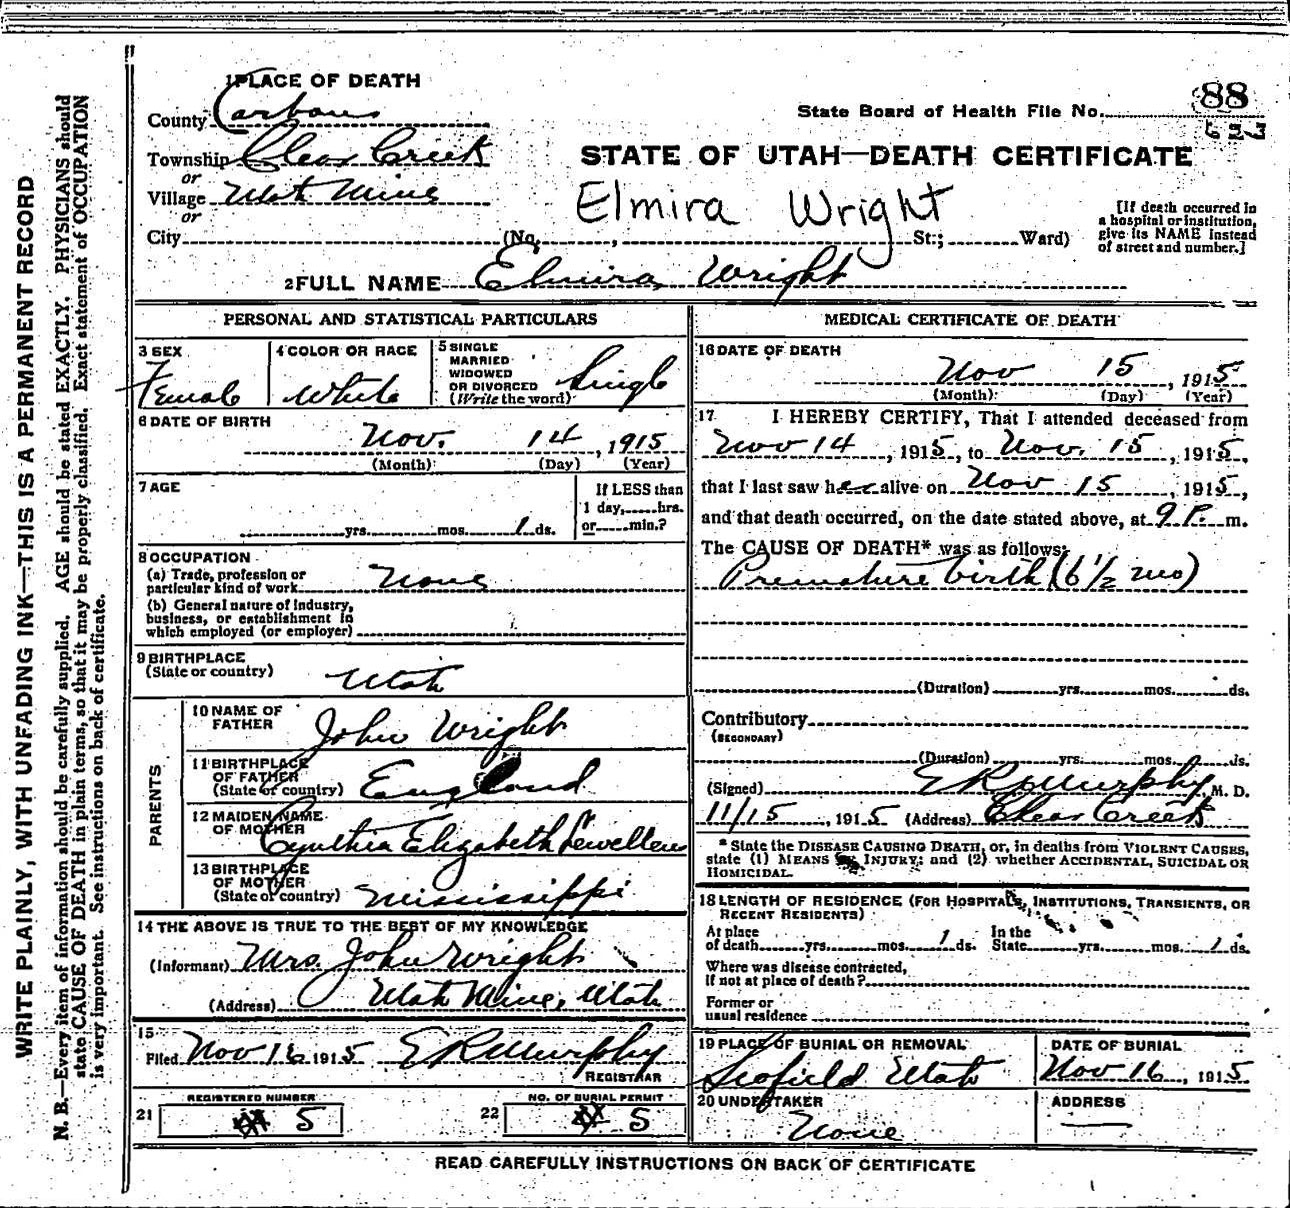 WRITE PLAINLY, WITH UNFADING INK—THIS IS A PERMANENT RECORD
N. B.—Every item of information should be carefully supplied. AGE should be stated EXACTLY. PHYSICIANS should
state CAUSE OF DEATH in plain terms, so that it may be properly classified. Exact statement of OCCUPATION
is very important. See instructions on back of certificate.
1 PLACE OF DEATH
County Carbon
Township Clear Creek
or
Village Utah Mine
or
City (No. , St; Ward)
State Board of Health File No. 88
STATE OF UTAH—DEATH CERTIFICATE
Elmira Wright
[If death occurred in
a hospital or institution,
give its NAME instead
of street and number.]
2 FULL NAME Elmira Wright
PERSONAL AND STATISTICAL PARTICULARS
3 SEX
Female
4 COLOR OR RACE
White
5 SINGLE
MARRIED
WIDOWED
OR DIVORCED
(Write the word)
Single
6 DATE OF BIRTH
Nov. 14, 1915
(Month) (Day) (Year)
7 AGE
yrs. mos. 1 ds.
If LESS than
1 day, hrs.
or min.?
8 OCCUPATION
(a) Trade, profession or
particular kind of work None
(b) General nature of industry,
business, or establishment in
which employed (or employer)
9 BIRTHPLACE
(State or country) Utah
PARENTS
10 NAME OF
FATHER John Wright
11 BIRTHPLACE
OF FATHER
(State or country) England
12 MAIDEN NAME
OF MOTHER
Cynthia Elizabeth Lewellen
13 BIRTHPLACE
OF MOTHER
(State or country) Mississippi
14 THE ABOVE IS TRUE TO THE BEST OF MY KNOWLEDGE
(Informant) Mrs. John Wright
(Address) Utah Mine, Utah
15
Filed Nov 16 1915 E R Murphy
REGISTRAR
21 REGISTERED NUMBER
5
22 NO. OF BURIAL PERMIT
5
MEDICAL CERTIFICATE OF DEATH
16 DATE OF DEATH
Nov 15, 1915
(Month) (Day) (Year)
17 I HEREBY CERTIFY, That I attended deceased from
Nov 14, 1915, to Nov. 15, 1915,
that I last saw her alive on Nov 15, 1915,
and that death occurred, on the date stated above, at 9 P. m.
The CAUSE OF DEATH* was as follows:
Premature birth (6 1/2 mo)
(Duration) yrs. mos. ds.
Contributory
(SECONDARY)
(Duration) yrs. mos. ds.
(Signed) E R Murphy, M. D.
11/15, 1915 (Address) Clear Creek
* State the DISEASE CAUSING DEATH, or, in deaths from VIOLENT CAUSES,
state (1) MEANS OF INJURY; and (2) whether ACCIDENTAL, SUICIDAL OR
HOMICIDAL.
18 LENGTH OF RESIDENCE (FOR HOSPITALS, INSTITUTIONS, TRANSIENTS, OR
RECENT RESIDENTS)
At place
of death yrs. mos. 1 ds.
In the
State yrs. mos. 1 ds.
Where was disease contracted,
if not at place of death?
Former or
usual residence
19 PLACE OF BURIAL OR REMOVAL
Scofield Utah
DATE OF BURIAL
Nov 16, 1915
20 UNDERTAKER
None
ADDRESS
READ CAREFULLY INSTRUCTIONS ON BACK OF CERTIFICATE